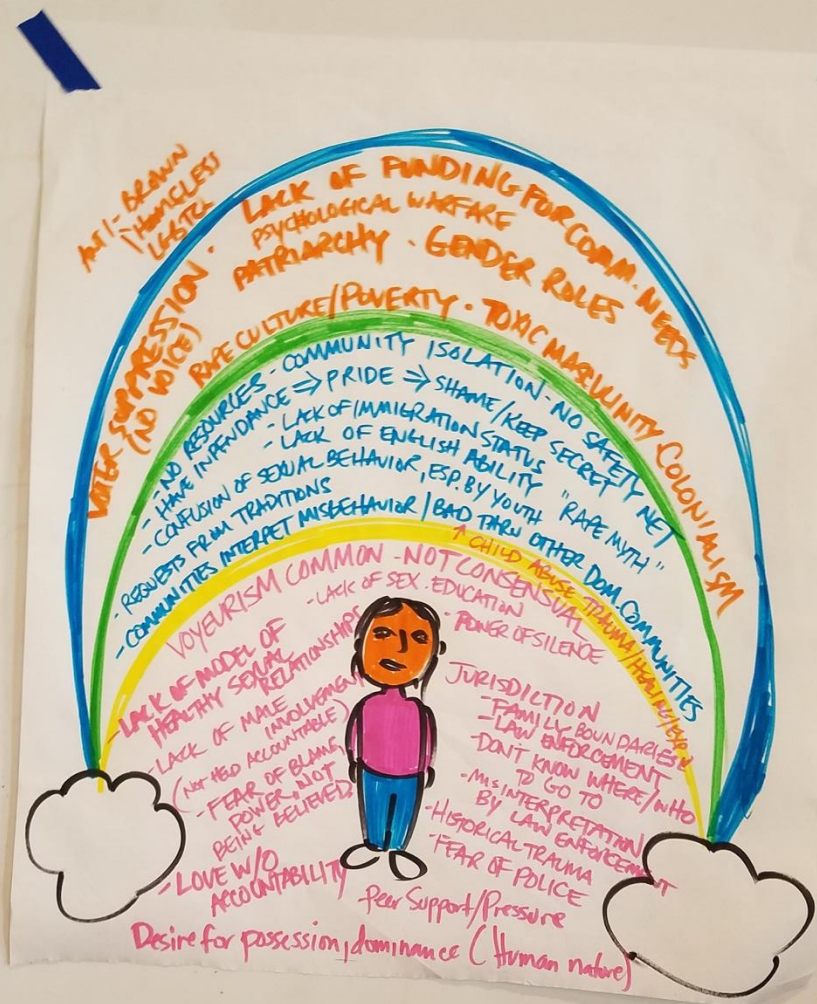 ANTI-BROWN
HOMELESS
LGBTQ
VOTER SUPPRESSION · LACK OF FUNDING FOR COMM. NEEDS
(NO VOICE)
PSYCHOLOGICAL WARFARE
PATRIARCHY · GENDER ROLES
RAPE CULTURE/POVERTY · TOXIC MASCULINITY COLONIALISM
- NO RESOURCES - COMMUNITY ISOLATION - NO SAFETY NET
- HAVE INPENDANCE ⇒ PRIDE ⇒ SHAME/KEEP SECRET
- LACK OF IMMIGRATION STATUS
- LACK OF ENGLISH ABILITY "RAPE MYTH"
- CONFUSION OF SEXUAL BEHAVIOR, ESP. BY YOUTH
· REQUESTS FROM TRADITIONS
- COMMUNITIES INTERPET MISBEHAVIOR / BAD THAN OTHER DOM. COMMUNITIES
↑ CHILD ABUSE TRAUMA/HEALING/
VOYEURISM COMMON - NOT CONSENSUAL
- LACK OF SEX. EDUCATION
- POWER OF SILENCE
- LACK OF MODEL OF
HEALTHY SEXUAL
RELATIONSHIPS
- LACK OF MALE
INVOLVEMENT
(NOT HELD ACCOUNTABLE)
- FEAR OF BLAME,
POWER, NOT
BEING BELIEVED
- LOVE W/O
ACCOUNTABILITY
JURISDICTION
- FAMILY BOUNDARIES
- LAW ENFORCEMENT
- DON'T KNOW WHERE/WHO
TO GO TO
- MISINTERPRETATION
BY LAW ENFORCEMENT
- HISTORICAL TRAUMA
- FEAR OF POLICE
Peer Support/Pressure
Desire for possession, dominance (Human nature)